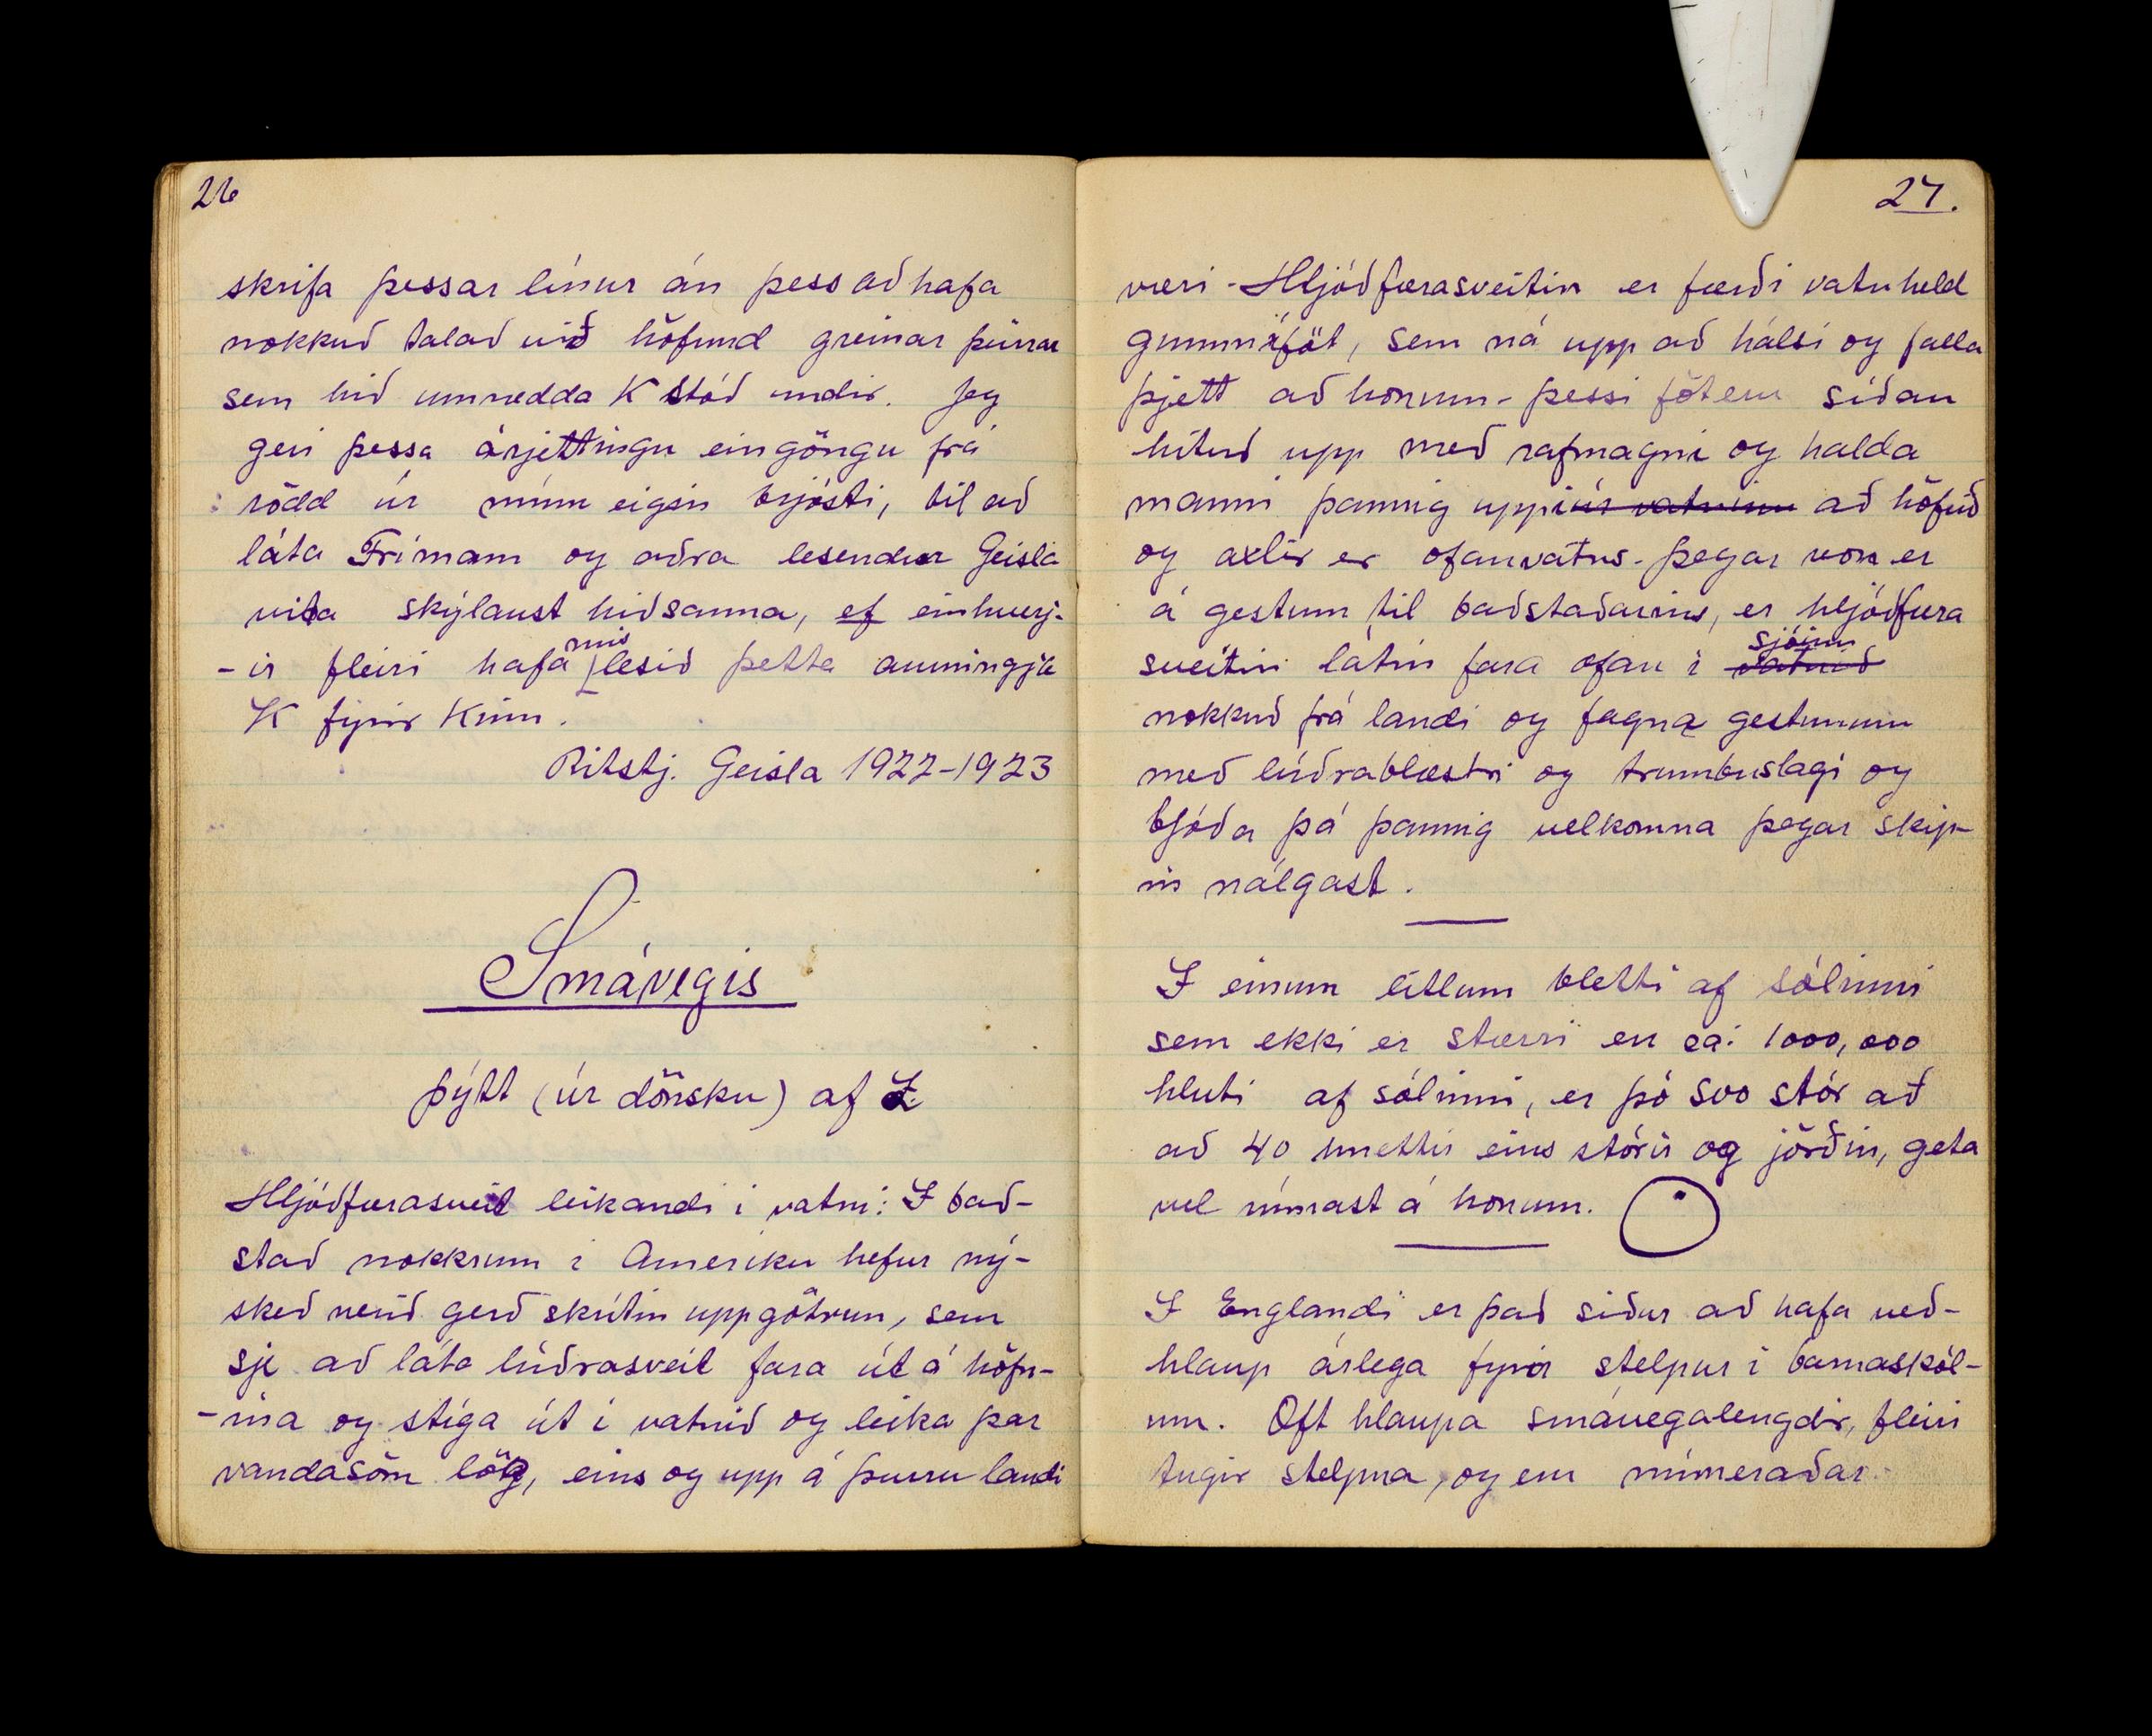 26
skrifa þessar línur án þess að hafa
nokkuð talað við höfund greinar þeirrar
sem hið umrædda K stóð undir. Jeg
geri þessa árjettingu eingöngu frá
rödd úr mínu eigin brjósti, til að
láta Frímann og aðra lesendur Geisla
vita skýlaust hið sanna, ef einhverj-
-ir fleiri hafa mislesið þetta aumingja
K fyrir Kinn.
Ritstj. Geisla 1922-1923
Smávegis
þýtt (úr dönsku) af Z.
Hljóðfærasveit leikandi i vatni: I bað-
stað nokkrum i Ameríku hefur ný-
skeð verið gerð skrítin uppgötvun, sem
sje að láta lúðrasveit fara út á höfn-
-ina og stíga út i vatnið og leika þar
vandasöm lög, eins og upp á þurru landi
27.
væri - Hljóðfærasveitin er færð i vatnheld
gummiföt, sem ná upp að hálsi og falla
þjett að honum - þessi föt eru síðan
hituð upp með rafmagni og halda
manni þannig uppi úr vatninu að höfuð
og axlir er ofanvatns - þegar von er
á gestum til baðstaðarins, er hljóðfæra
sveitin látin fara ofan i vatnið sjóinn
nokkuð frá landi og fagna gestunum
með lúðrablæstri og trumbuslagi og
bjóða þá þannig velkomna þegar skip-
in nálgast.
I einum litlum bletti af sólinni
sem ekki er stærri en ca: 1000,000
hluti af sólinni, er þó svo stór að
að 40 hnettir eins stórir og jörðin, geta
vel rúmast á honum.
I Englandi er það siður að hafa veð-
hlaup árlega fyrir stelpur i barnaskól-
um. Oft hlaupa smávegalengdir, fleiri
tugir stelpna, og eru númeraðar